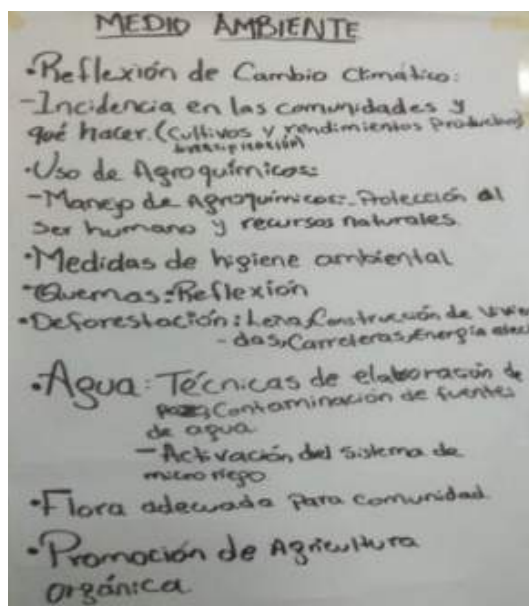 MEDIO AMBIENTE
• Reflexión de Cambio Climático:
- Incidencia en las comunidades y
qué hacer. (Cultivos y rendimientos Productivos)
• Uso de Agroquímicos:
- Manejo de Agroquímicos: Protección al
ser humano y recursos naturales.
• Medidas de higiene ambiental
• Quemas: Reflexión
• Deforestación: Leña, Construcción de Vivien-
- das, Carreteras, Energía
• Agua: Técnicas de elaboración de
Contaminación de fuentes
de agua
- Activación del sistema de
micro riego
• Flora adecuada para comunidad.
• Promoción de Agricultura
Orgánica.